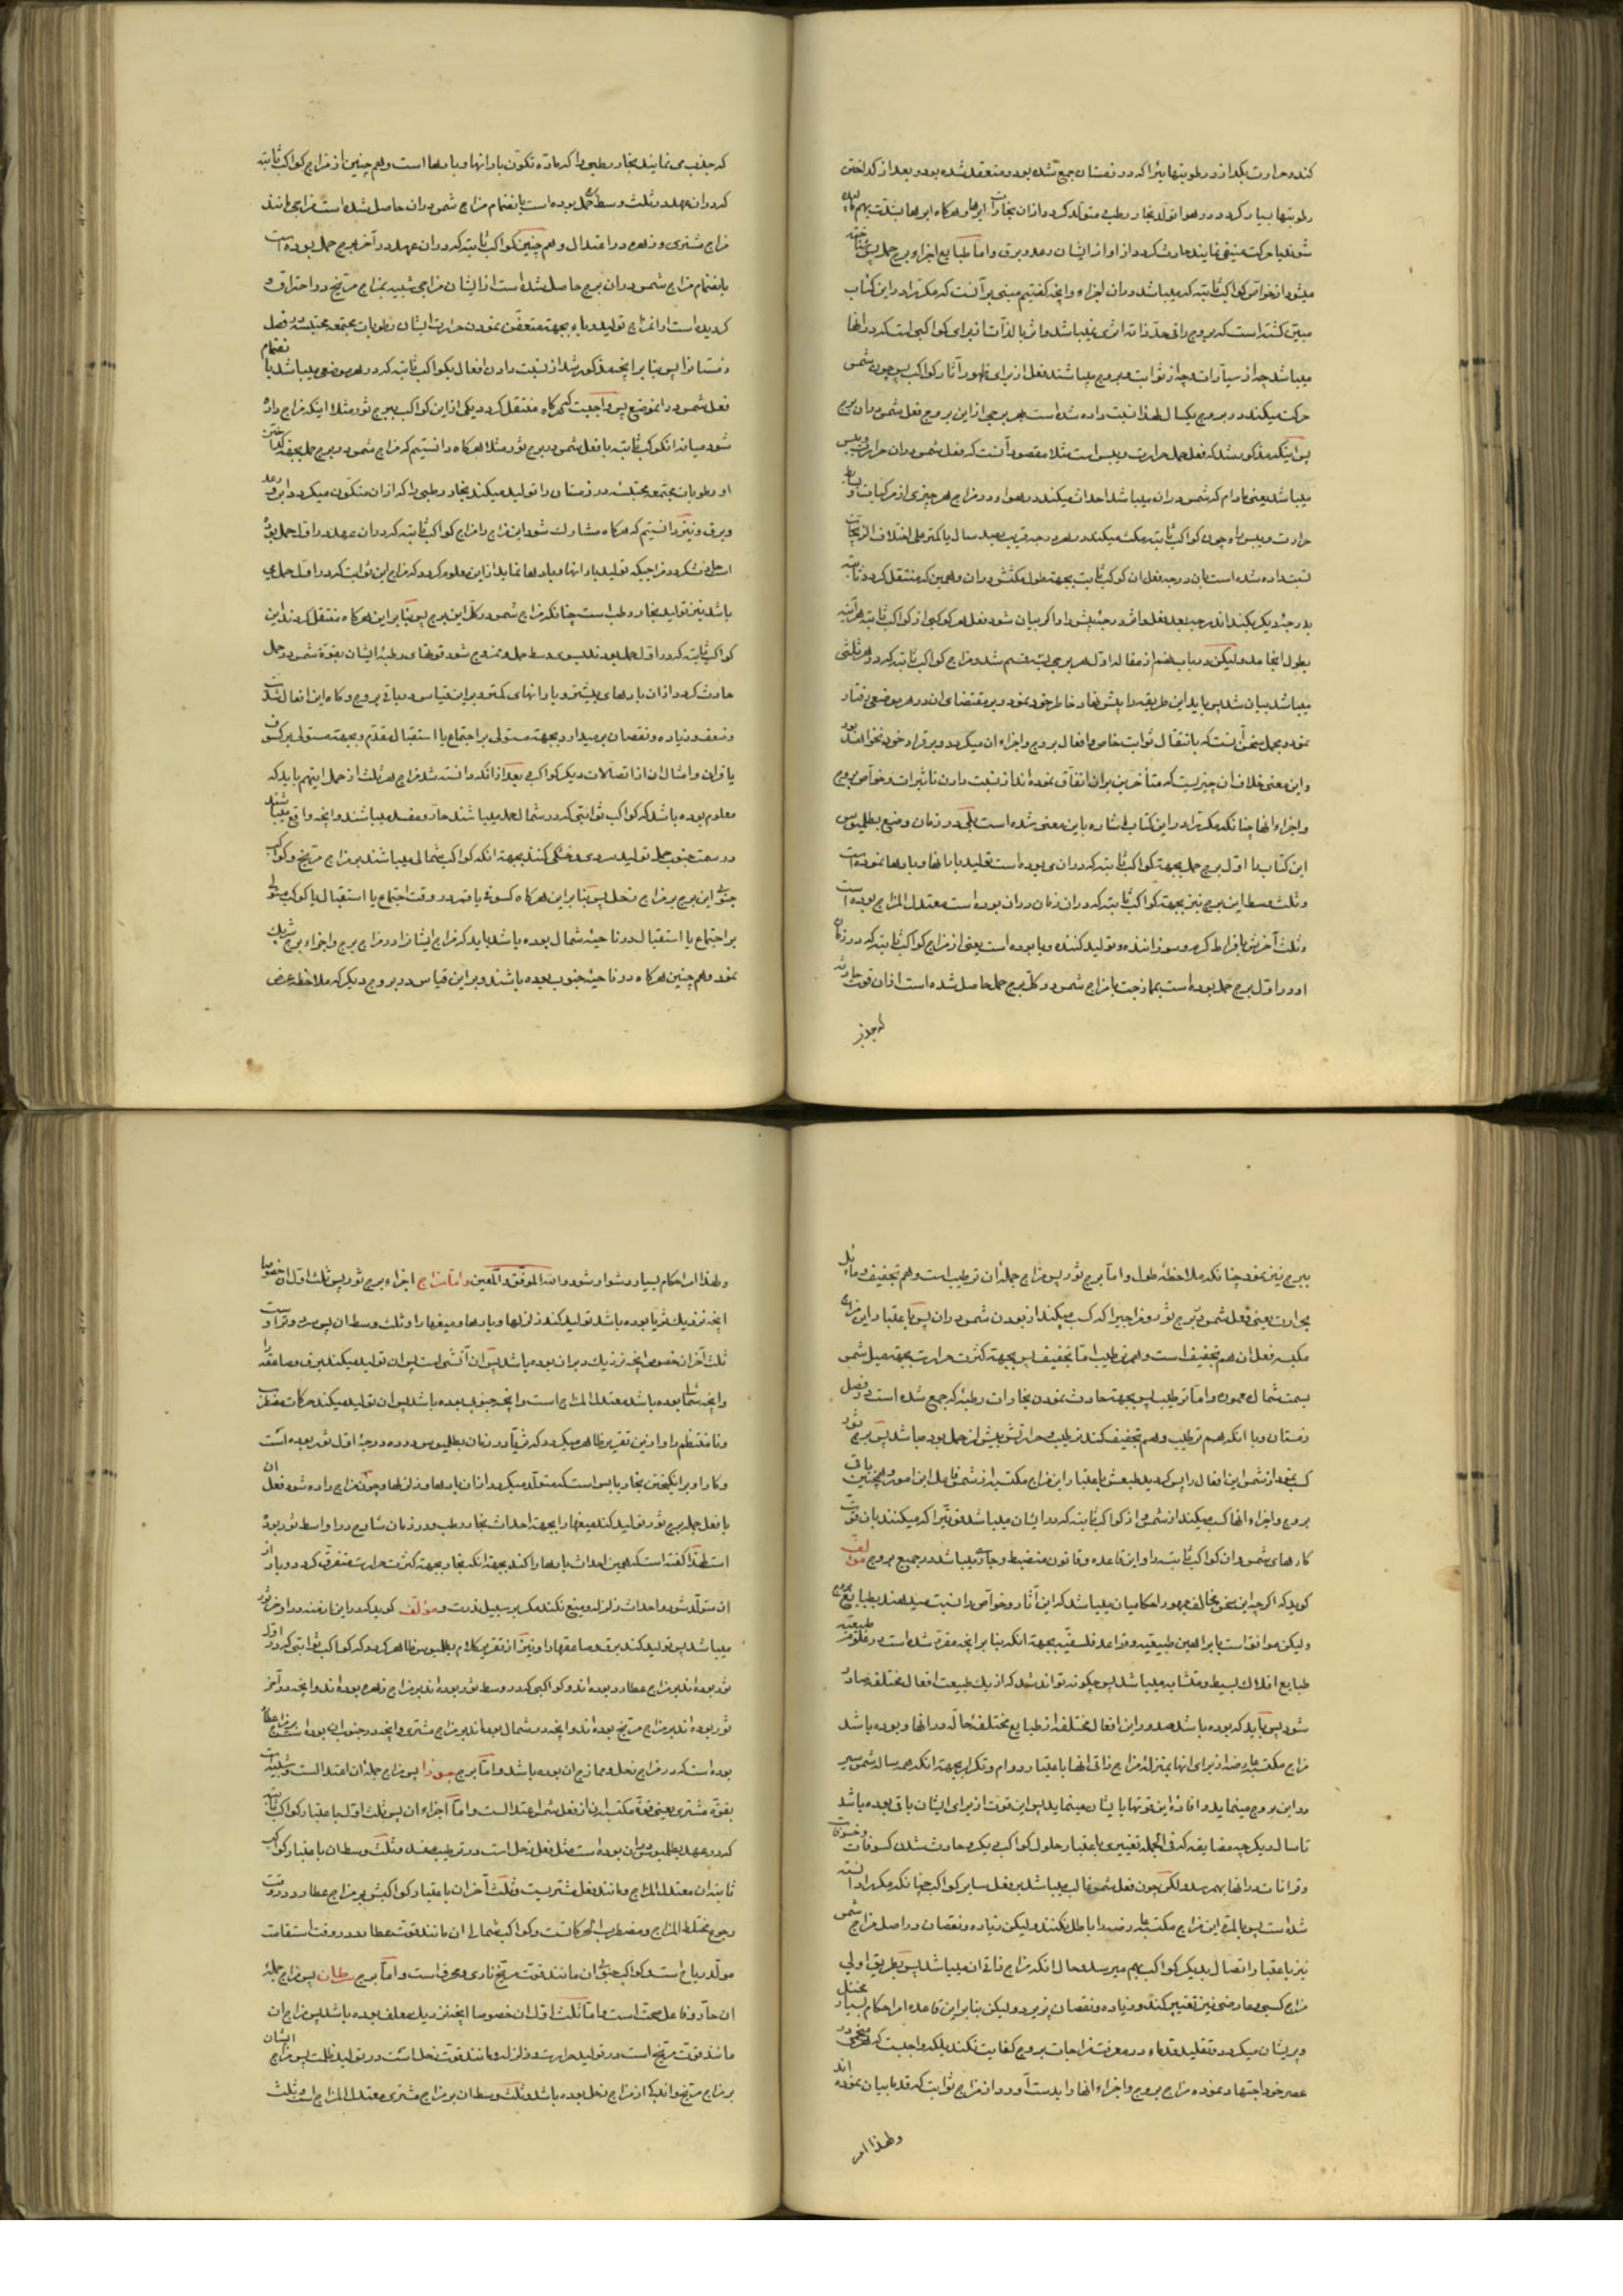 کند و حرارت بکدازد رطوبتهایی را که در زمستان جمع شده بود و منعقد شده بود و بعد از کداختن
رطوبتها بسیار کردد در هوا تولد بخار رطب و متولد کردد ازان بخارات ابرها و هرکاه ابرها بشدت بهم
شوند یا حرکت عنیفی نمایند حادث کردد از اواز ایشان رعد و برق و اما طبایع اجزاء برج حمل پس
میشود از خواص کواکب ثابته که میباشد دران اجزاء و آنچه کفتیم مبنی برآنست که مکرر در این کتاب
مبین کشته است که بروج را فی حد ذاته اثری نمیباشد و اثر بالذات از برای کواکبی است که در آنها
میباشد چه از سیارات و چه از ثوابت و بروج میباشند فعل از برای ظهور آثار کواکب پس چون شمس
حرکت میکند در بروج یکسال لهذا نسبت داده شده است بهر برجی از این بروج فعل شمس دران برج
پس اینکه مذکور شد که فعل حمل حرارت و یبس است مثلا مقصود آنست که فعل شمس دران حرارت و یبس
میباشد یعنی مادام که شمس دران میباشد احداث میکند در هوا و در مزاج هر چیزی از مرکبات و بسایط
حرارت و یبس را و چون کواکب ثابته مکث میکند در هر درجه قریب بصد سال یا کمتر علی اختلاف الزیجات
نسبت داده شده است بان درجه فعل ان کوکب ثابت بجهة طول مکثش دران و همین که منتقل کردد ثابته
بدرجهٔ دیکر
بطول انجامد ولیکن در باب هفتم از مقاله اول هر برجی بسه قسم شد و مزاج کواکب ثابته که در هر ثلثی
میباشد بیان شد پس باید این طریقه را پیش نهاد خاطر خود نمود و بر مقتضای ان در هر موضعی رفتار
نمود و مجمل سخن آنست که بانتقال ثوابت خاص و افعال بروج و اجزاء ان میکردد و برقرار خود نخواهد بود
و این معنی خلاف ان چیزیست که متأخرین بران اتفاق نموده اند از نسبت دادن تاثیرات و خواص بروج
و اجزاء آنها چنانکه مکرر در این کتاب اشاره باین معنی شده است بلی در زمان وضع بطلمیوس
این کتاب را اول برج حمل بجهة کواکب ثابته که دران می بوده است تولید بارانها و بادها نموده است
و ثلث وسط این برج نیز بجهة کواکب ثابته که دران زمان دران بوده است معتدل المزاج بوده است
و ثلث آخرش بافراط کرم و سوزاننده و تولید کننده وبا بوده است یعنی از مزاج کواکب ثابته که در زمان
او در اول برج حمل بوده است بممازجت با مزاج شمس در کل برج حمل حاصل شده است ازان قوت
که جذب
که جذب می نمایند بخار رطبی را که ماده تکون بارانها و بادها است و هم چنین از مزاج کواکب ثابته
که دران عهد در ثلث وسط حمل بوده است بانضمام مزاج شمس دران حاصل شده است مزاجی مانند
مزاج مشتری و زهره در اعتدال و هم چنین کواکب ثابته که دران عهد در آخر برج حمل بوده است
بانضمام مزاج شمس دران برج حاصل شده است از ایشان مزاجی شبیه بمزاج مریخ در احتراق و
کردیده است اوانمزاج تولید وباء بجهة متعفن نمودن حرارت ایشان رطوبات مجتمعه محتبسه در فصل
زمستان را پس بنا بر آنچه مذکور شد از نسبت دادن افعال بکواکب ثابته که در هر موضعی میباشد با انضمام
فعل شمس دران موضع پس واجبست که هرکاه منتقل کردد یکی از این کواکب ببرج ثور مثلا اینکه مزاج داده
شود میانه ان کوکب ثابته با فعل شمس در برج ثور مثلا هرکاه دانستیم که مزاج شمس در برج حمل بجهة کداختن
او رطوبات مجتمعه محتبسه در زمستان را تولید میکند بخار رطبی را که ازان متکون میکردد ابر و رعد
و برق و نیز دانستیم که هرکاه مشارک شود این مزاج را مزاج کواکب ثابته که دران عهد در اول حمل بوده
است حادث کردد مزاجیکه تولید بارانها و بادها نماید از این معلوم کردد که مزاج این ثوابت که در اول حمل می
باشد نیز تولید بخار رطب است چنانکه مزاج شمس در کل این برج پس بنا بر این هرکاه منتقل کردند این
کواکب ثابته که در اول حمل بودند بسوی وسط حمل و ممزوج شود قوتهای رطبهٔ ایشان بقوة شمس در حمل
حادث کردد ازان بادهای بیشتر و بارانهای کمتر و بر این قیاس در باقی بروج و کاه این افعال شدت
و ضعف و زیاده و نقصان بر میدارد بجهة مستولی بر اجتماع یا استقبال مقدم و بجهة مستولی بر کسوف
یا قران و امثال ان از اتصالات دیکر کواکب و بعد از آنکه دانسته شد مزاج هر ثلث از حمل اینهم باید که
معلوم بوده باشد که کواکب ثوابتی که در شمال حمل میباشند حار و مفسد میباشند و آنچه واقع میباشند
در سمت جنوب حمل تولید سردی و خنکی کنند بجهة انکه کواکب شمالی میباشند بر مزاج مریخ و کواکب
جنوبی این برج بر مزاج زحل پس بنا بر این هرکاه کسوفی یا قمر در وقت اجتماع یا استقبال یا کوکب مستولی
بر اجتماع یا استقبال در ناحیهٔ شمال بوده باشد باید که مزاج ایشانرا در مزاج برج و اجزاء برج شریک
نمود و هم چنین هرکاه در ناحیهٔ جنوب بوده باشند و بر این قیاس در بروج دیکر که ملاحظه عرض
ببرج نیز نمود چنانکه ملاحظهٔ طول و اما برج ثور پس مزاج جملهٔ ان ترطیب است و هم تجفیف و مایل
بحرارت یعنی فعل شمس در برج ثور و مزاجیرا که کسب میکند از بودن شمس دران پس باعتبار این مزاج
مکتسبه فعل ان هم تجفیف است و هم ترطیب اما تجفیف پس بجهة کثرت حرارت بجهة میل شمس
بسمت شمال عموما و اما ترطیب پس بجهة حادث نمودن بخارات رطبه که جمع شده است در فصل
زمستان و با انکه هم ترطیب و هم تجفیف کند ترطیب و حرارتش بیش از حمل بوده باشد پس برج ثور
کسب نمود از شمس این افعال را پس کردید طبعش باعتبار این مزاج مکتسبه از شمس فاعل این امور و همچنین باقی
بروج و اجزاء آنها کسب میکند از شمس و از کواکب ثابته که در ایشان میباشد قوتیرا که میکنند بان قوت
کارهای شمس و ان کواکب ثابته را و این قاعده و قانون منضبط و جاری میباشد در جمیع بروج مؤلف
کوید که اکرچه این سخن مخالف جمهور احکامیان میباشد که این آثار و خواص را نسبت میدهند بطبایع بروج
ولیکن موافق است با براهین طبیعیه و قواعد فلسفیه بجهة انکه بنا بر آنچه مقرر شده است در علوم طبیعیه
طبایع افلاک بسیط و متشابه میباشد پس چکونه تواند شد که از یک طبیعت افعال مختلفه صادر
شود پس باید که بوده باشد صدور این افعال مختلفه از طبایع مختلفهٔ حاله در آنها و بوده باشد
مزاج مکتسبه عارضه از برای آنها بمنزلهٔ مزاج ذاتی آنها باعتبار دوام و تکرار بجهة انکه هر ساله شمس سیر
در این بروج مینماید و افادهٔ این قوتها بایشان مینماید پس این قوت از برای ایشان باقی بوده باشد
تا سال دیکر چه مضایقه که فی الجمله تغییری باعتبار حلول کواکب دیکر و حادث شدن کسوفات و خسوفات
و قرانات در آنها بهم رسد ولکن چون فعل شمس غالب میباشد بر فعل سایر کواکب چنانکه مکرر دانسته
شده است پس بالمره این مزاج مکتسبه عارضه را باطل نکنند ولیکن زیاده و نقصان در اصل مزاج شمس
نیز باعتبار اتصال بدیکر کواکب بهم میرسد و حال انکه مزاج ذاتی ان میباشد پس بطریق اولی
مزاج کسبی و عارضی نیز تغییر کند و زیاده و نقصان پذیرد ولیکن بنا بر این قاعده امر احکام بسیار مختل
و پریشان میکردد و تقلید قدماء در معرفت مزاجات بروج کفایت نکند بلکه واجبست که در هر
عصر خود اجتهاد نموده مزاج بروج و اجزاء آنها را بدست آورد از مزاج ثوابت که قدما بیان نموده اند
و لهذا امر
و لهذا امر احکام بسیار دشوار شود و الله الموفق و المعین و اما مزاج اجزاء برج ثور پس ثلث اول ان خصوصا
آنچه نزدیک ثریا بوده باشد تولید کند زلزلها و بادها و میغها را و ثلث وسط ان پس سرد و تر است
ثلث آخر ان خصوص آنچه نزدیک دبران بوده باشد پس ان آتشی است پس ان تولید میکند برق و صاعقه را
و آنچه شمالی بوده باشد معتدل المزاج است و آنچه جنوبی بوده باشد پس ان تولید میکند حرکات مضطرب
و نامنتظم را و از این تقریر ظاهر میکردد که ثریا در زمان بطلمیوس در ده درجهٔ اول ثور بوده است
و کار او برانکیختن بخار یابس است که متولد میکردد ازان بادها و زلزلها و چون مزاج داده شود فعل ان
با فعل جمله برج ثور تولید کند میغها را بجهة احداث بخار رطب و در زمان شارح در اواسط ثور بوده
است لهذا کفته است که همین احداث بادها را کند بجهة انکه بخار بجهة کثرت حرارت متفرق کردد و باد از
ان متولد شود و احداث زلزله و میغ نکند مکر بر سبیل ندرت و مؤلف کوید که در این ازمنه در اواخر ثور
میباشد پس تولید کند برق و صاعقها را و نیز از تقریر کلام بطلمیوس ظاهر کردد که کواکب ثوابتی که در اول
ثور بوده اند بر مزاج عطارد بوده اند و کواکبی که در وسط ثور بوده اند بر مزاج زهره بوده اند و آنچه در آخر
ثور بوده اند بر مزاج مریخ بوده اند و آنچه در شمال بوده اند بر مزاج مشتری و آنچه در جنوب ان بوده اند بر مزاج عطارد
بوده است که در مزاج زحل و ممازج ان بوده باشد و اما برج جوزا پس مزاج جملهٔ ان اعتدالست و شبیه است
بقوة مشتری یعنی قوة مکتسبه ان از فعل شمس اعتدالست و اما اجزاء ان پس ثلث اول باعتبار کواکب ثابته
که در عهد بطلمیوس دران بوده است مثل فعل زحل است در ترطیب مفسد و ثلث وسط ان باعتبار کواکب
ثابته ان معتدل المزاج و مانند فعل مشتریست و ثلث آخر ان باعتبار کواکبش بر مزاج عطارد در وقت
رجوع مختلط المزاج و مضطرب الحرکاتست و کواکب شمالی ان مانند قوت عطارد در وقت استقامت
مولد ریاح است و کواکب جنوبی ان مانند قوت مریخ ناری و محرق است و اما برج سرطان پس مزاج جملهٔ
ان حار و فاعل صحت است و اما ثلث اول ان خصوصا آنچه نزدیک معلف بوده باشد پس مزاج ان
مانند قوت مریخ است در تولید حرارت و زلزله و مانند قوت زحل است در تولید ظلمت پس مزاج ایشان
بر مزاج مریخ و اندکی از مزاج زحل بوده باشد و ثلث وسط ان بر مزاج مشتری معتدل المزاج است و ثلث